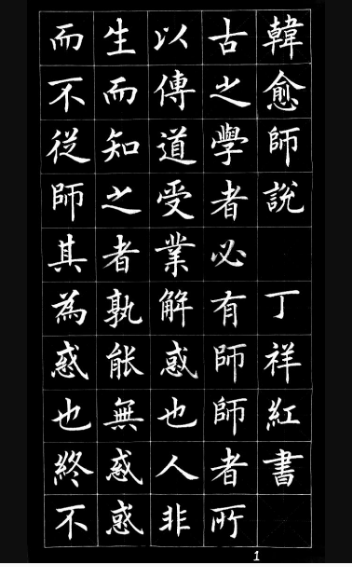 韓愈師說 丁祥紅書
古之學者必有師師者所
以傳道受業解惑也人非
生而知之者孰能無惑惑
而不從師其為惑也終不
1